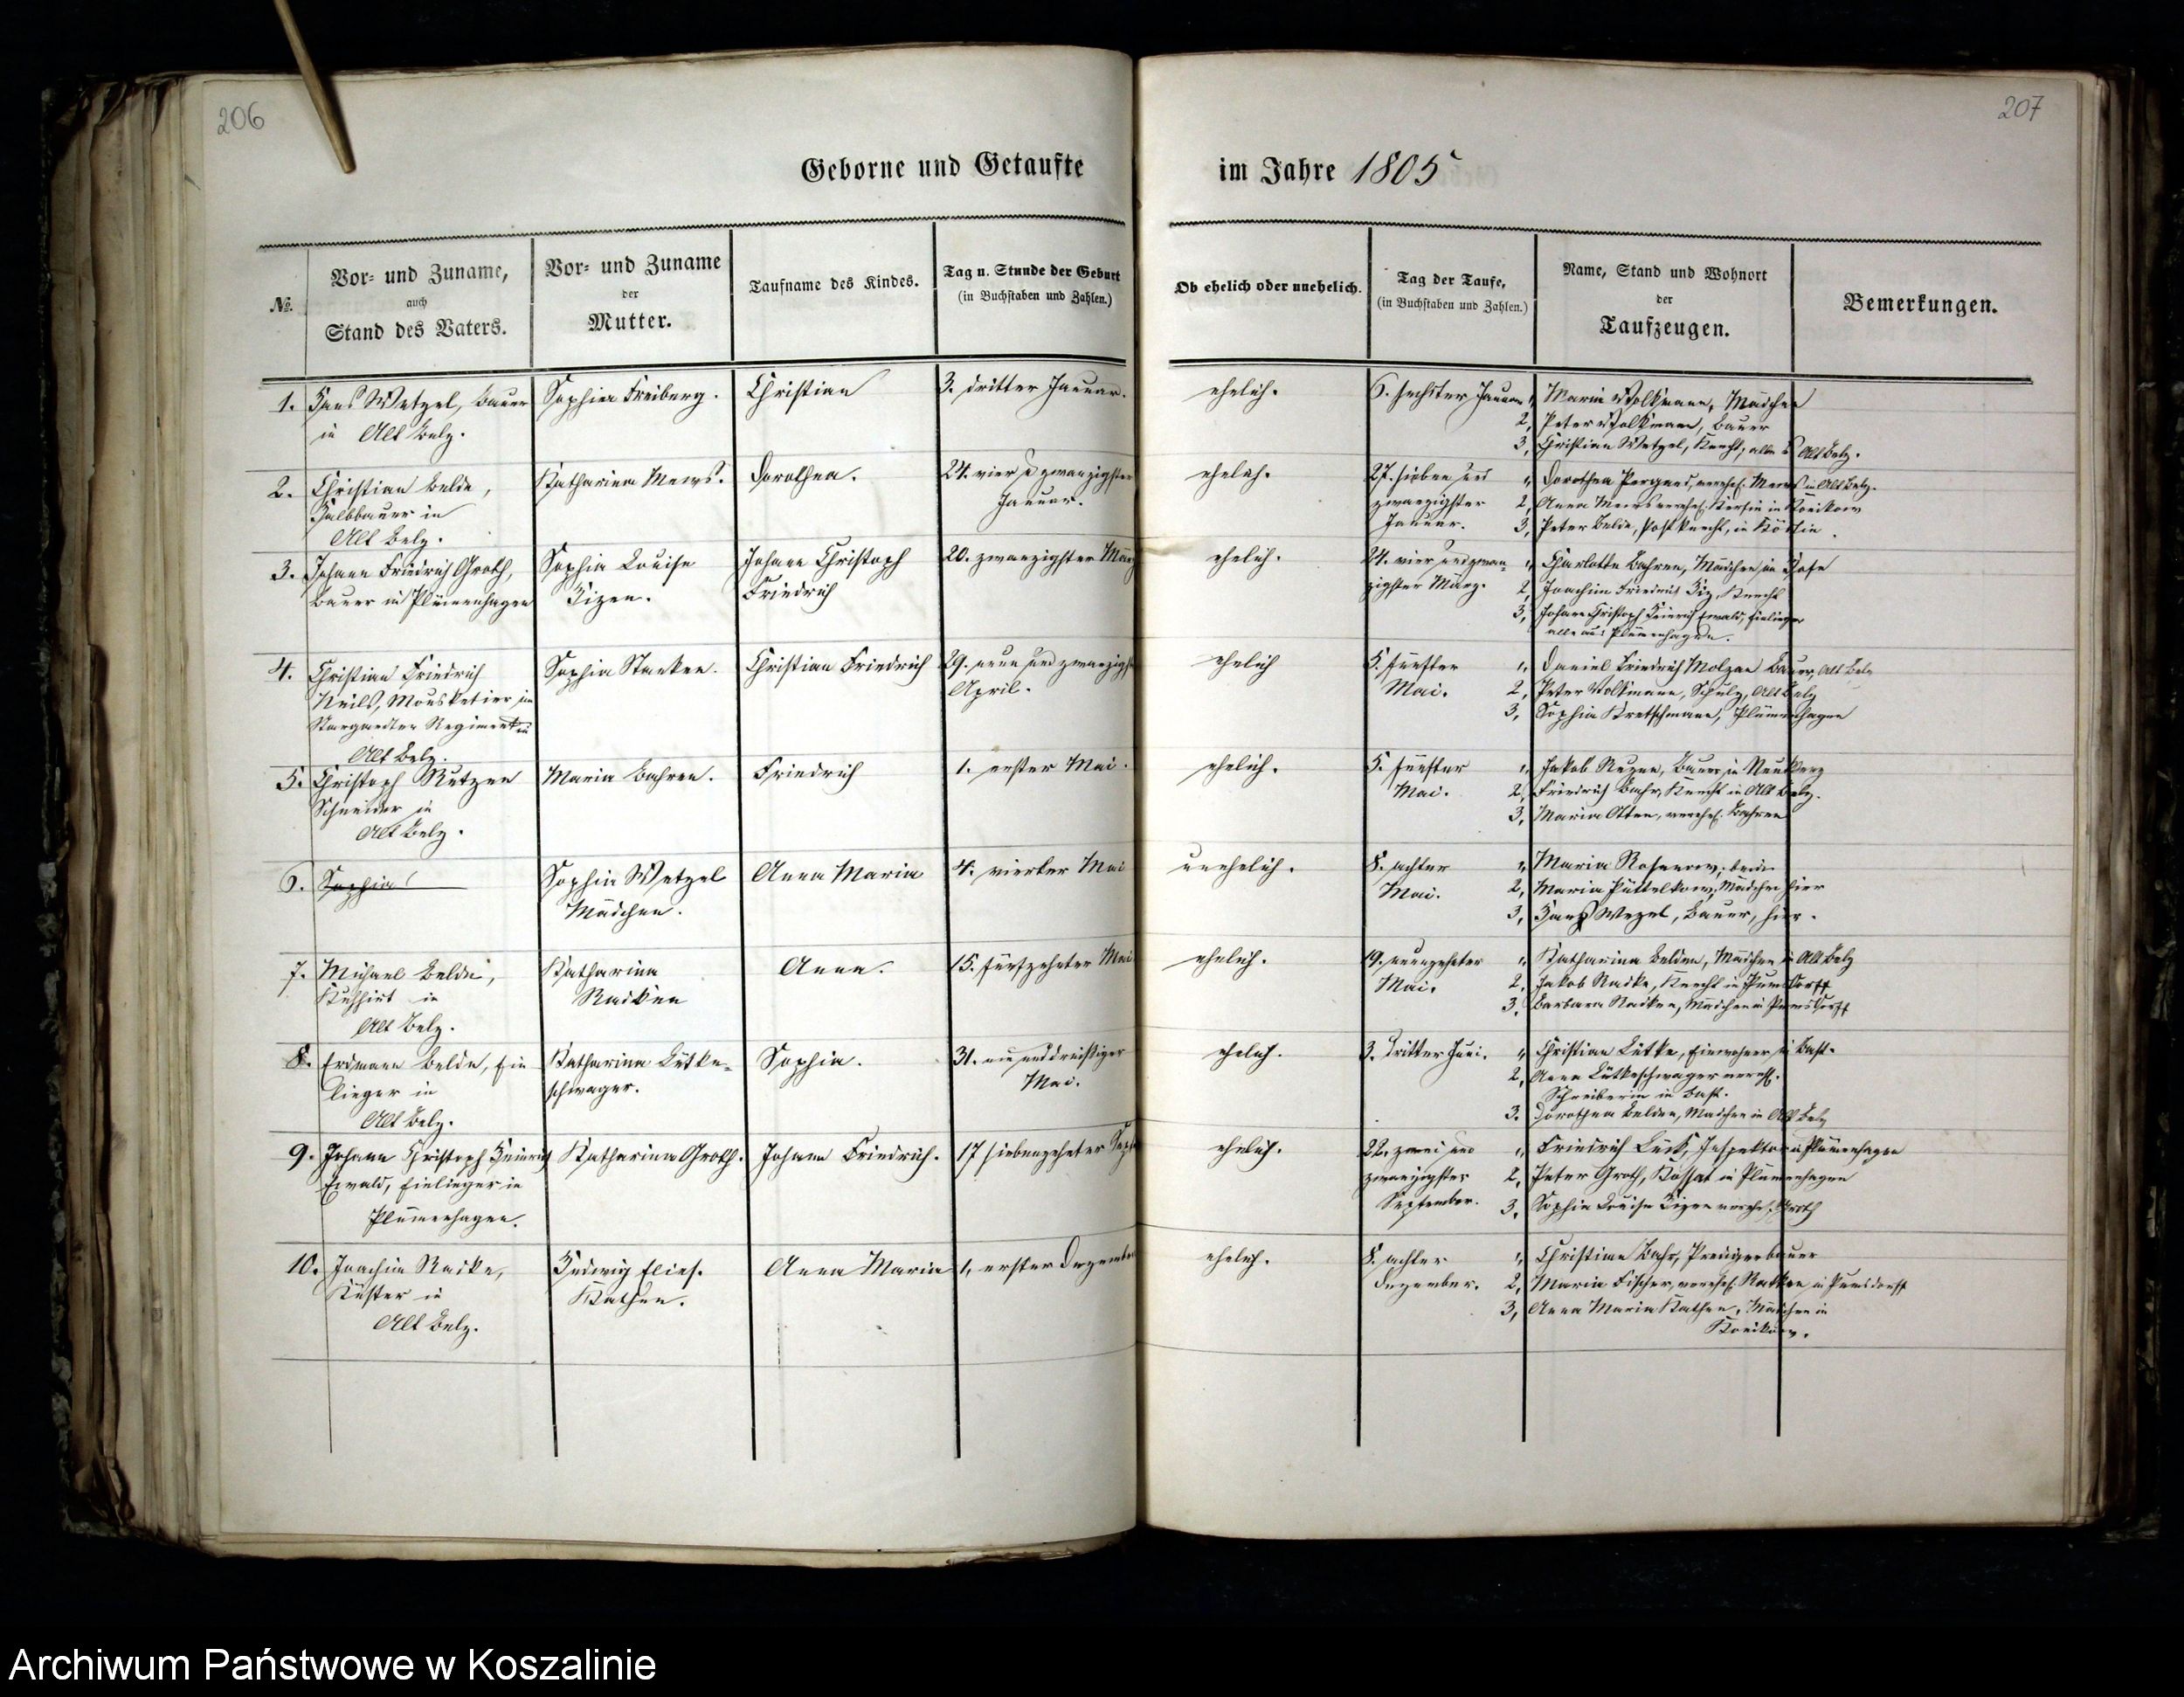 206
207
Geborne und Getaufte
im Jahre 1805
№.
Vor- und Zuname,
auch
Stand des Vaters.
Vor- und Zuname
der
Mutter.
Taufname des Kindes.
Tag u. Stunde der Geburt
(in Buchstaben und Zahlen.)
Ob ehelich oder unehelich.
Tag der Taufe,
(in Buchstaben und Zahlen.)
Name, Stand und Wohnort
der
Taufzeugen.
Bemerkungen.
1. Hans Wetzel, Bauer
in Alt Belz.
Sophia Freiberg.
Christian
3. dritter Januar.
ehelich.
6. sechster Januar
1, Maria Volkmann, Mädchen
2, Peter Volkmann, Bauer
3, Christian Wetzel, Knecht, alle Alt Belz.
2. Christian Belde,
Halbbauer in
Alt Belz.
Katharina Mews.
Dorothea.
24. vier u zwanzigster
Januar.
ehelich.
27. sieben und
zwanzigster
Januar.
1, Dorothea verehel. Mews in Alt Belz.
2, Anna Mews verehel. Kersin in Konikow
3, Peter Belde, Postknecht, in Köslin.
3. Johann Friedrich Groth,
Bauer in Plümenhagen
Sophia Louise
Kizen.
Johann Christoph
Friedrich
20. zwanzigster März
ehelich.
24. vier und zwan-
zigster März.
1, Charlotte Bahren, Mädchen im Hofe
2, Joachim Friedrich Kiz, Knecht
3, Johann Christoph Heinrich Ewald, Einlieger
alle aus Plümenhagen.
4. Christian Friedrich
Neils, Mousketier im
Stargardter Regiment in
Alt Belz.
Sophia Stanken.
Christian Friedrich
29. neun und zwanzigst
April.
ehelich
5. fünfter
Mai.
1, Daniel Friedrich Molzan Bauer, Alt Belz
2, Peter Volkmann, Schulz, Alt Belz
3, Sophia Kretschmann, Plümenhagen
5. Christoph Rutzen
Schneider in
Alt Belz.
Maria Bahren.
Friedrich
1. erster Mai.
ehelich.
5. fünfter
Mai.
1, Jakob Ruzen, Bauer in
2, Friedrich Bahr, Knecht in Alt Belz.
3, Maria Otten, verehel. Bahren
6. Sophia
Sophia Wetzel
Mädchen.
Anna Maria
4. vierter Mai
unehelich.
8. achter
Mai.
1, Maria Rosenow, beide
2, Maria Püttelkow, Mädchen hier
3, Hans Wezel, Bauer, hier.
7. Michael Belde,
Kuhhirt in
Alt Belz.
Katharina
Radken
Anna.
15. fünfzehnter Mai
ehelich.
19. neunzehnter
Mai.
1, Katharina Belden, Mädchen in Alt Belz
2, Jakob Radke, Knecht in
3, Barbara Radken, Mädchen in
8. Erdmann Belde, Ein
lieger in
Alt Belz.
Katharina Lütke-
schwager.
Sophia.
31. ein und dreißigster
Mai.
ehelich.
3. dritter Juni.
1, Christian Lütke, Einwohner in Bast.
2, Anna Lütkeschwager verehl.
Schreiberin in Bast.
3. Dorothea Belden, Mädchen in Alt Belz
9. Johann Christoph Heinrich
Ewald, Einlieger in
Plümenhagen.
Katharina Groth.
Johann Friedrich.
17 siebenzehnter Sept
ehelich.
22. zwei und
zwanzigster
September.
1, Friedrich Lück, Inspektor in Plümenhagen
2, Peter Groth, Kossat in Plümenhagen
3, Sophia Louise Kizen verehel. Groth
10. Joachim Radke,
Küster in
Alt Belz.
Hedwig Elies.
Kathen.
Anna Maria
1, erster Dezember
ehelich.
8. achter
Dezember.
1, Christian Bahr, Predigerbauer
2, Maria Fischer, verehel. Radken in
3, Anna Maria Kathen, Mädchen in
Konikow.
Archiwum Państwowe w Koszalinie